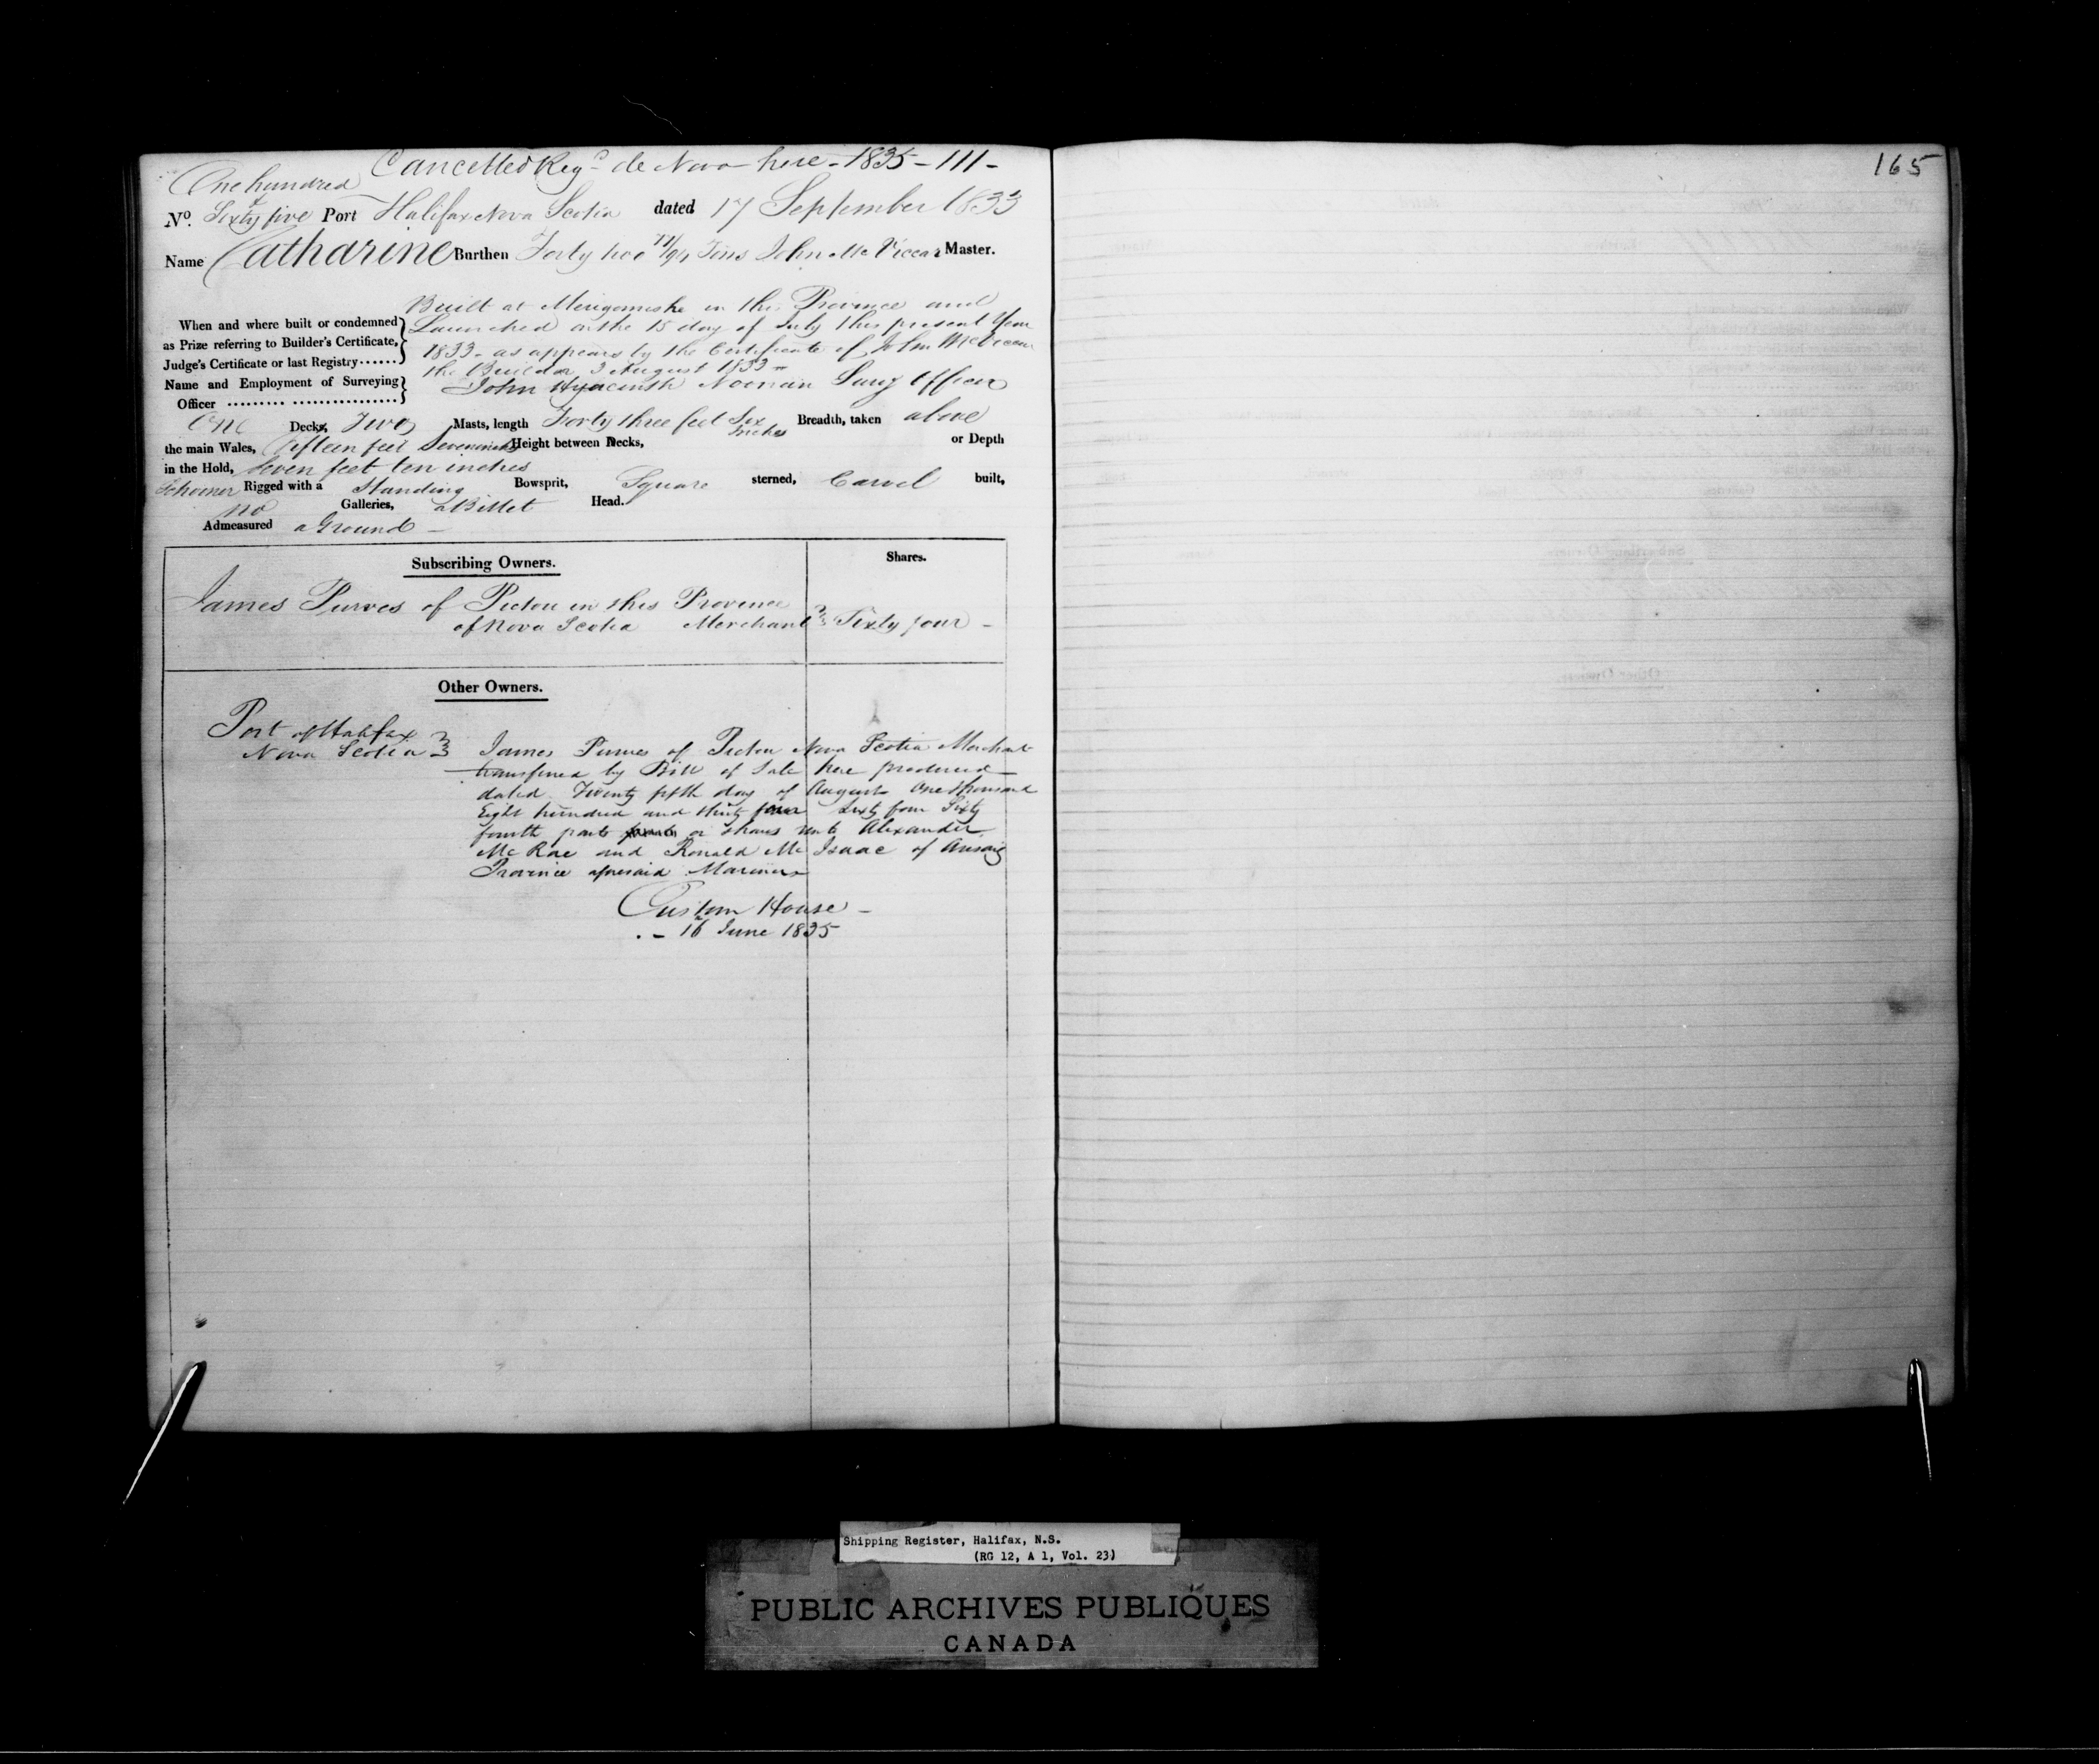 Cancelled Regd de Novo here - 1835 - 111 -
165
One hundred
No. Sixty five Port Halifax Nova Scotia dated 17 September 1833
Name Catharine Burthen Forty two 77/94 Tons John Mc Viccar Master.
Built at Merigomishe in this Province and
When and where built or condemned Launched on the 15 day of July this present Year
as Prize referring to Builder's Certificate, 1833 - as appears by the Certificate of John McViccar
Judge's Certificate or last Registry...... the Builder 3 August 1833 -
Name and Employment of Surveying John Hyacinth Noonan Surv Officer
Officer
One Decks, Two Masts, length Forty three feet Six Inches Breadth, taken above
the main Wales, fifteen feet Seven inches Height between Decks, or Depth
in the Hold, Seven feet ten inches
Schooner Rigged with a Standing Bowsprit, Square sterned, Carvel built,
no Galleries, a Billet Head.
Admeasured a Ground -
Subscribing Owners. Shares.
James Purves of Pictou in this Province
of Nova Scotia Merchant Sixty four -
Other Owners.
Port of Halifax
Nova Scotia James Purves of Pictou Nova Scotia Merchant
transferred by Bill of Sale here produced
dated Twenty fifth day of August One thousand
Eight hundred and thirty four Sixty four Sixty
fourth parts or shares unto Alexander
Mc Rae and Ronald Mc Isaac of Arisaig
Province aforesaid Mariners
Custom House -
16 June 1835
Shipping Register, Halifax, N.S.
(RG 12, A 1, Vol. 23)
PUBLIC ARCHIVES PUBLIQUES
CANADA